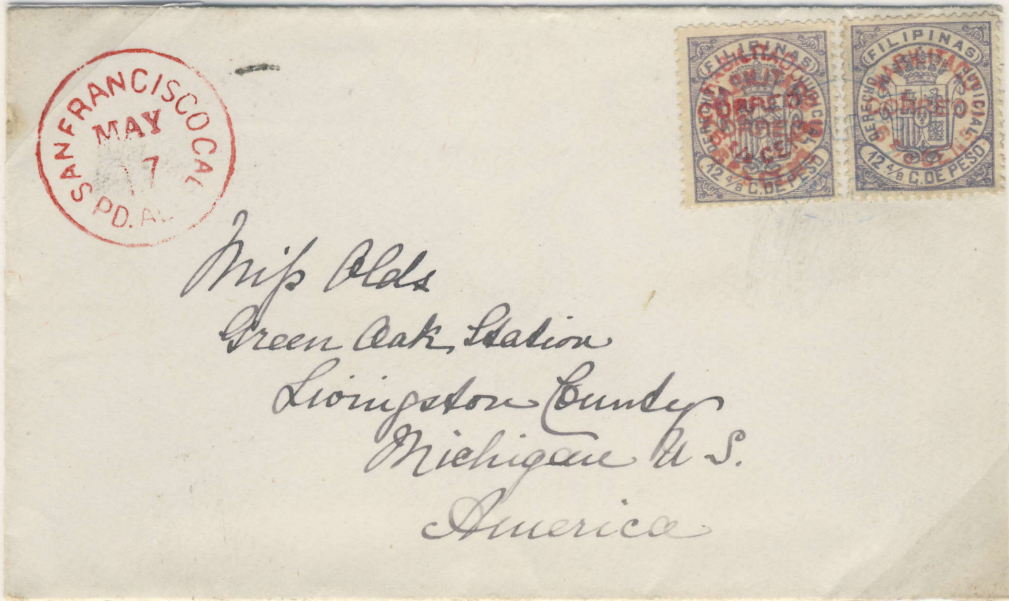 SAN FRANCISCO CAL
MAY
17
PD. A
FILIPINAS
DERECHO JUDICIAL
12 4/8 C. DE PESO
FILIPINAS
DERECHO JUDICIAL
CORREO
12 4/8 C. DE PESO
Miss Olds
Green Oak, Station
Livingston County
Michigan U S.
America